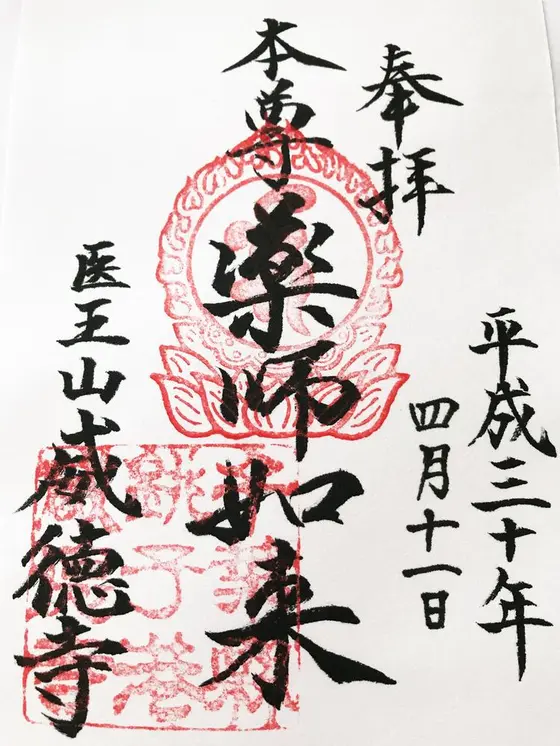 奉拝
平成三十年
四月十一日
本尊
薬師如来
医王山威徳寺